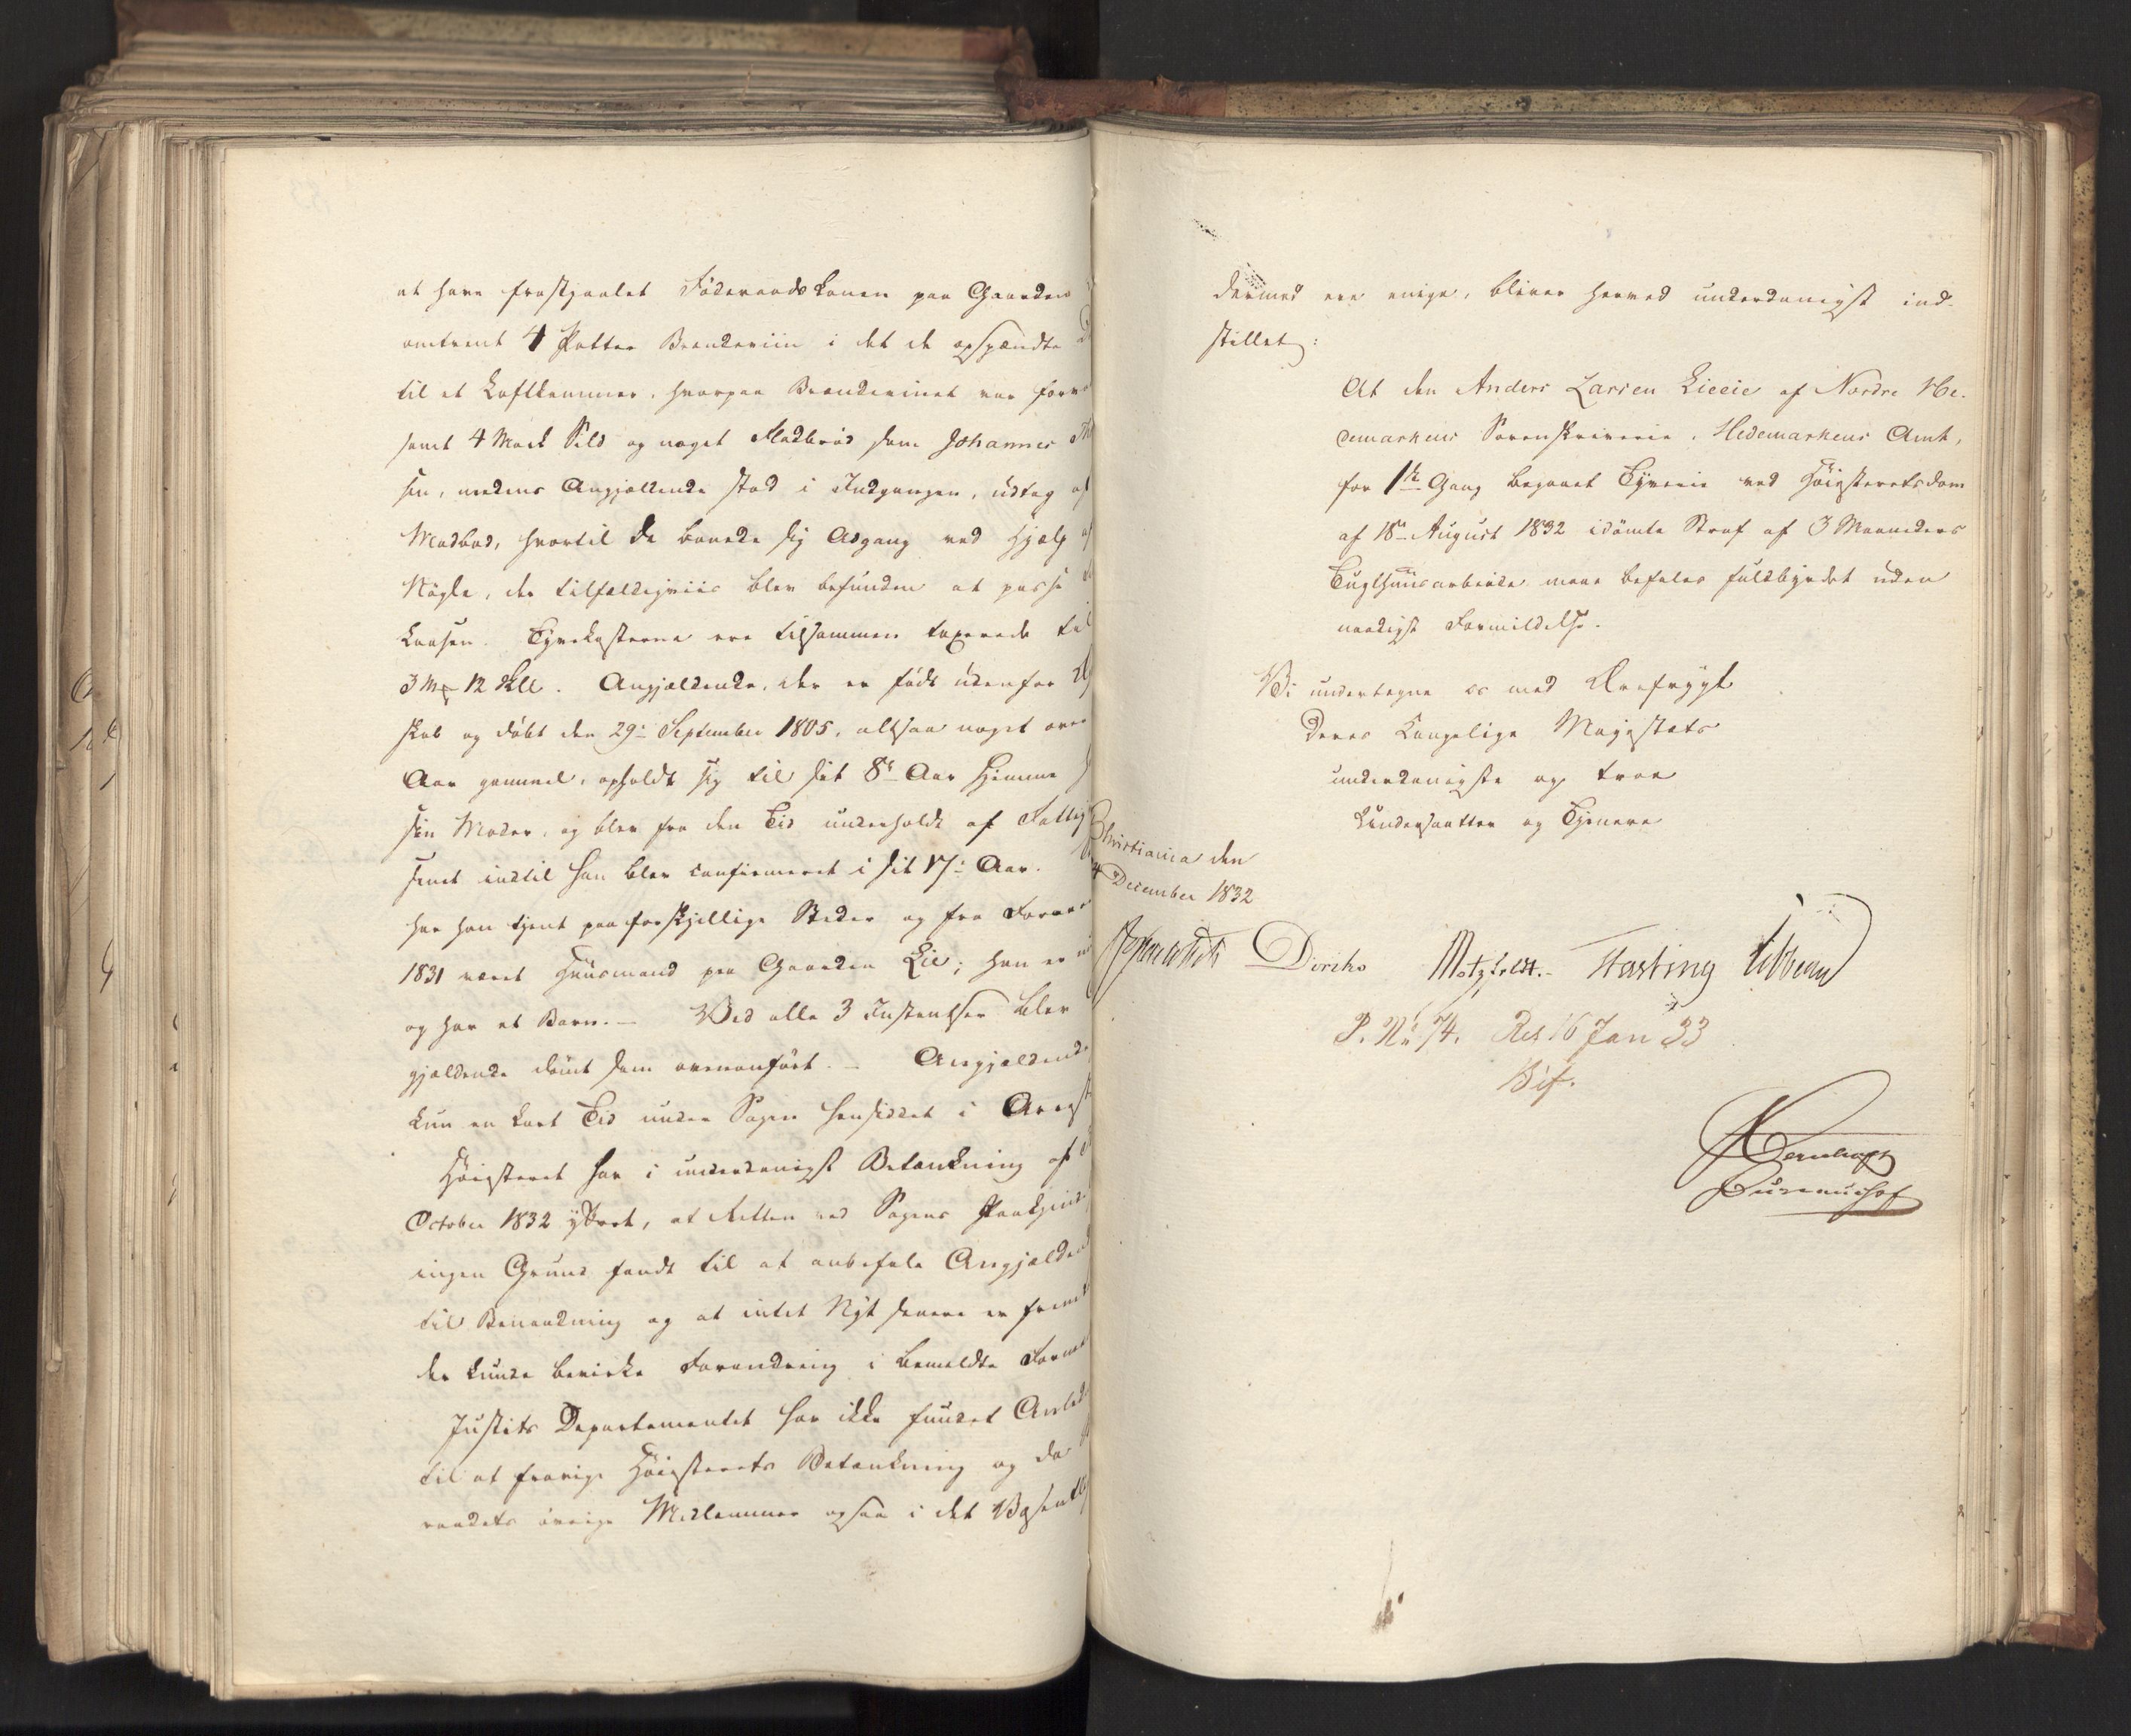 at have frastjaalet Föderaadskonen paa Gaarden
omtrent 4 Potter Brændeviin i det de opspændte
til et Loftkammer, hvorpaa Brændevinet var
samt 4 Mark Sild og noget Fladbrød som Johannes
sen, medens Angjældende stod i Indgangen, udtog af
Madbod, hvortil de banede sig Adgang ved Hjælp af
Nøgle, der tilfældigviis blev befunden at passe
Laasen. Tyvekosterne ere tilsammen taxerede til
3 Mk 12 Skll. Angjældende, der er født udenfor Æg
skab og döbt den 29de September 1805, altsaa noget over
Aar gammel, opholdt sig til sit 8de Aar hjemme
sin Moder, og blev fra den Tid underholdt af Fattig
indtil han blev confirmeret i sit 17de Aar.
har han tjent paa forskjellige Steder og fra Foraar
1831 været Huusmand paa Gaarden Lie; han er
og har et Barn. — Ved alle 3 Instantser blev
gjældende dömt som ovenanfört. — Angjældende
kun en kort Tid under Sagen hensiddet i Arrest
Høiesteret har i underdanigst Betænkning af
October 1832 yttret, at Retten ved Sagens Paakjend
ingen Grund fandt til at anbefale Angjældend
til Benaadning og at intet Nyt senere er frem
der kunde bevirke Forandring i bemeldte
Justits Departementet har ikke fundet Anled
til at fravige Høiesterets Betænkning og da
raadets øvrige Medlemmer ogsaa i det Væsentlig
dermed ere enige, bliver herved underdanigst ind-
stillet:
At den Anders Larsen Lieeie af Nordre He-
demarkens Sorenskriverie, Hedemarkens Amt,
for 1ste Gang begaaet Tyverie ved Høiesteretsdom
af 18de August 1832 idömte Straf af 3 Maaneders
Tugthuusarbeide maae befales fuldbyrdet uden
naadigst Formildelse.
Vi undertegne os med Ærefrygt
Deres Kongelige Majestæts
underdanigste og troe
Undersaatter og Tjenere
Christiania den
4 December 1832
Diriks Motzfeldt. Fasting Vibeaud
P. No 74. Res 16 Jan 33
Bif.
Dunenhof